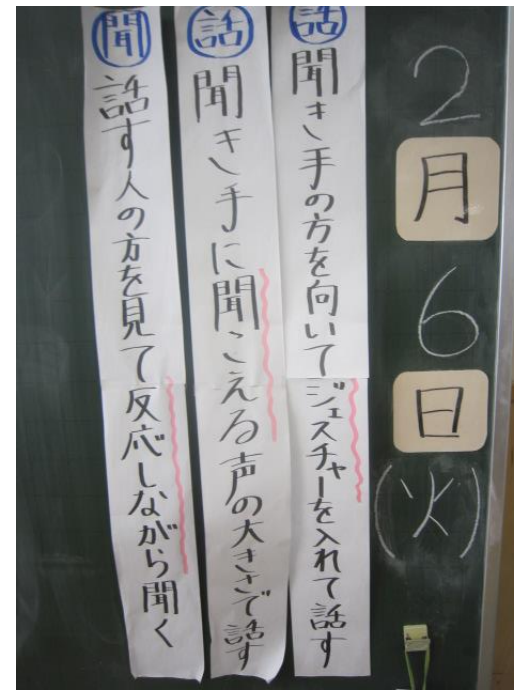 2月6日(火)
話 聞き手の方を向いてジェスチャーを入れて話す
話 聞き手に聞こえる声の大きさで話す
聞 話す人の方を見て反応しながら聞く